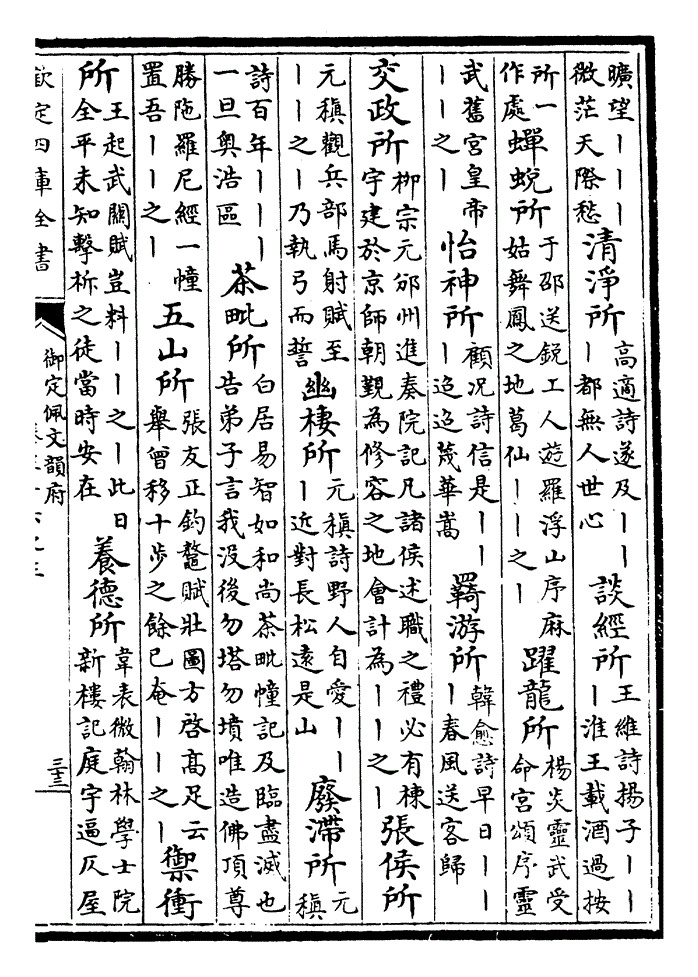 曠望｜｜｜微茫天際愁 清淨所 高適詩遂及｜｜｜都無人世心 談經所 王維詩揚子｜｜｜淮王載酒過按
所一作處 蟬蛻所 于邵送銳工人遊羅浮山序麻姑舞鳳之地葛仙｜｜之｜ 躍龍所 楊炎靈武受命宮頌序靈
武舊宮皇帝｜｜之｜ 怡神所 顧况詩信是｜｜｜迢迢蔑華嵩 羇游所 韓愈詩早日｜｜｜春風送客歸
交政所 柳宗元邠州進奏院記凡諸侯述職之禮必有棟宇建於京師朝覲為修容之地會計為｜｜之｜ 張侯所
元稹觀兵部馬射賦至｜｜之｜乃執弓而誓 幽棲所 元稹詩野人自愛｜｜｜近對長松遠是山 廢滯所 元稹
詩百年｜｜｜一旦奥浩區 茶毗所 白居易智如和尚茶毗幢記及臨盡滅也告弟子言我没後勿塔勿墳唯造佛頂尊
勝陁羅尼經一幢置吾｜｜之｜ 五山所 張友正釣鼇賦壯圖方啓高足云舉曾移十步之餘已奄｜｜之｜ 禦衝
所 王起武關賦豈料｜｜之｜此日全平未知擊柝之徒當時安在 養德所 韋表微翰林學士院新樓記庭宇逼仄屋
欽定四庫全書
御定佩文韻府
三十三